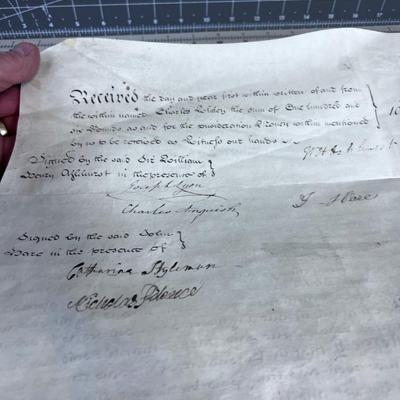 Received the day and year first within written of and from
the within named Charles the sum of One hundred and
six Pounds as and for the consideration Money within mentioned
by us to be received as Witness our hands
Signed by the said Sir William
Henry Ashhurst in the presence of
Joseph Lyon
Charles Anguish
J Hare
Signed by the said John
Hare in the presence of
Catharina Styleman
Nicholas